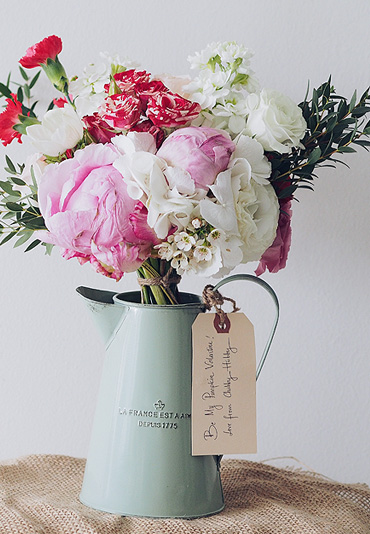 LA FRANCE EST A
DEPUIS 1775
Be My Pumpkin Valentine!
Love from Chubby-Hubby